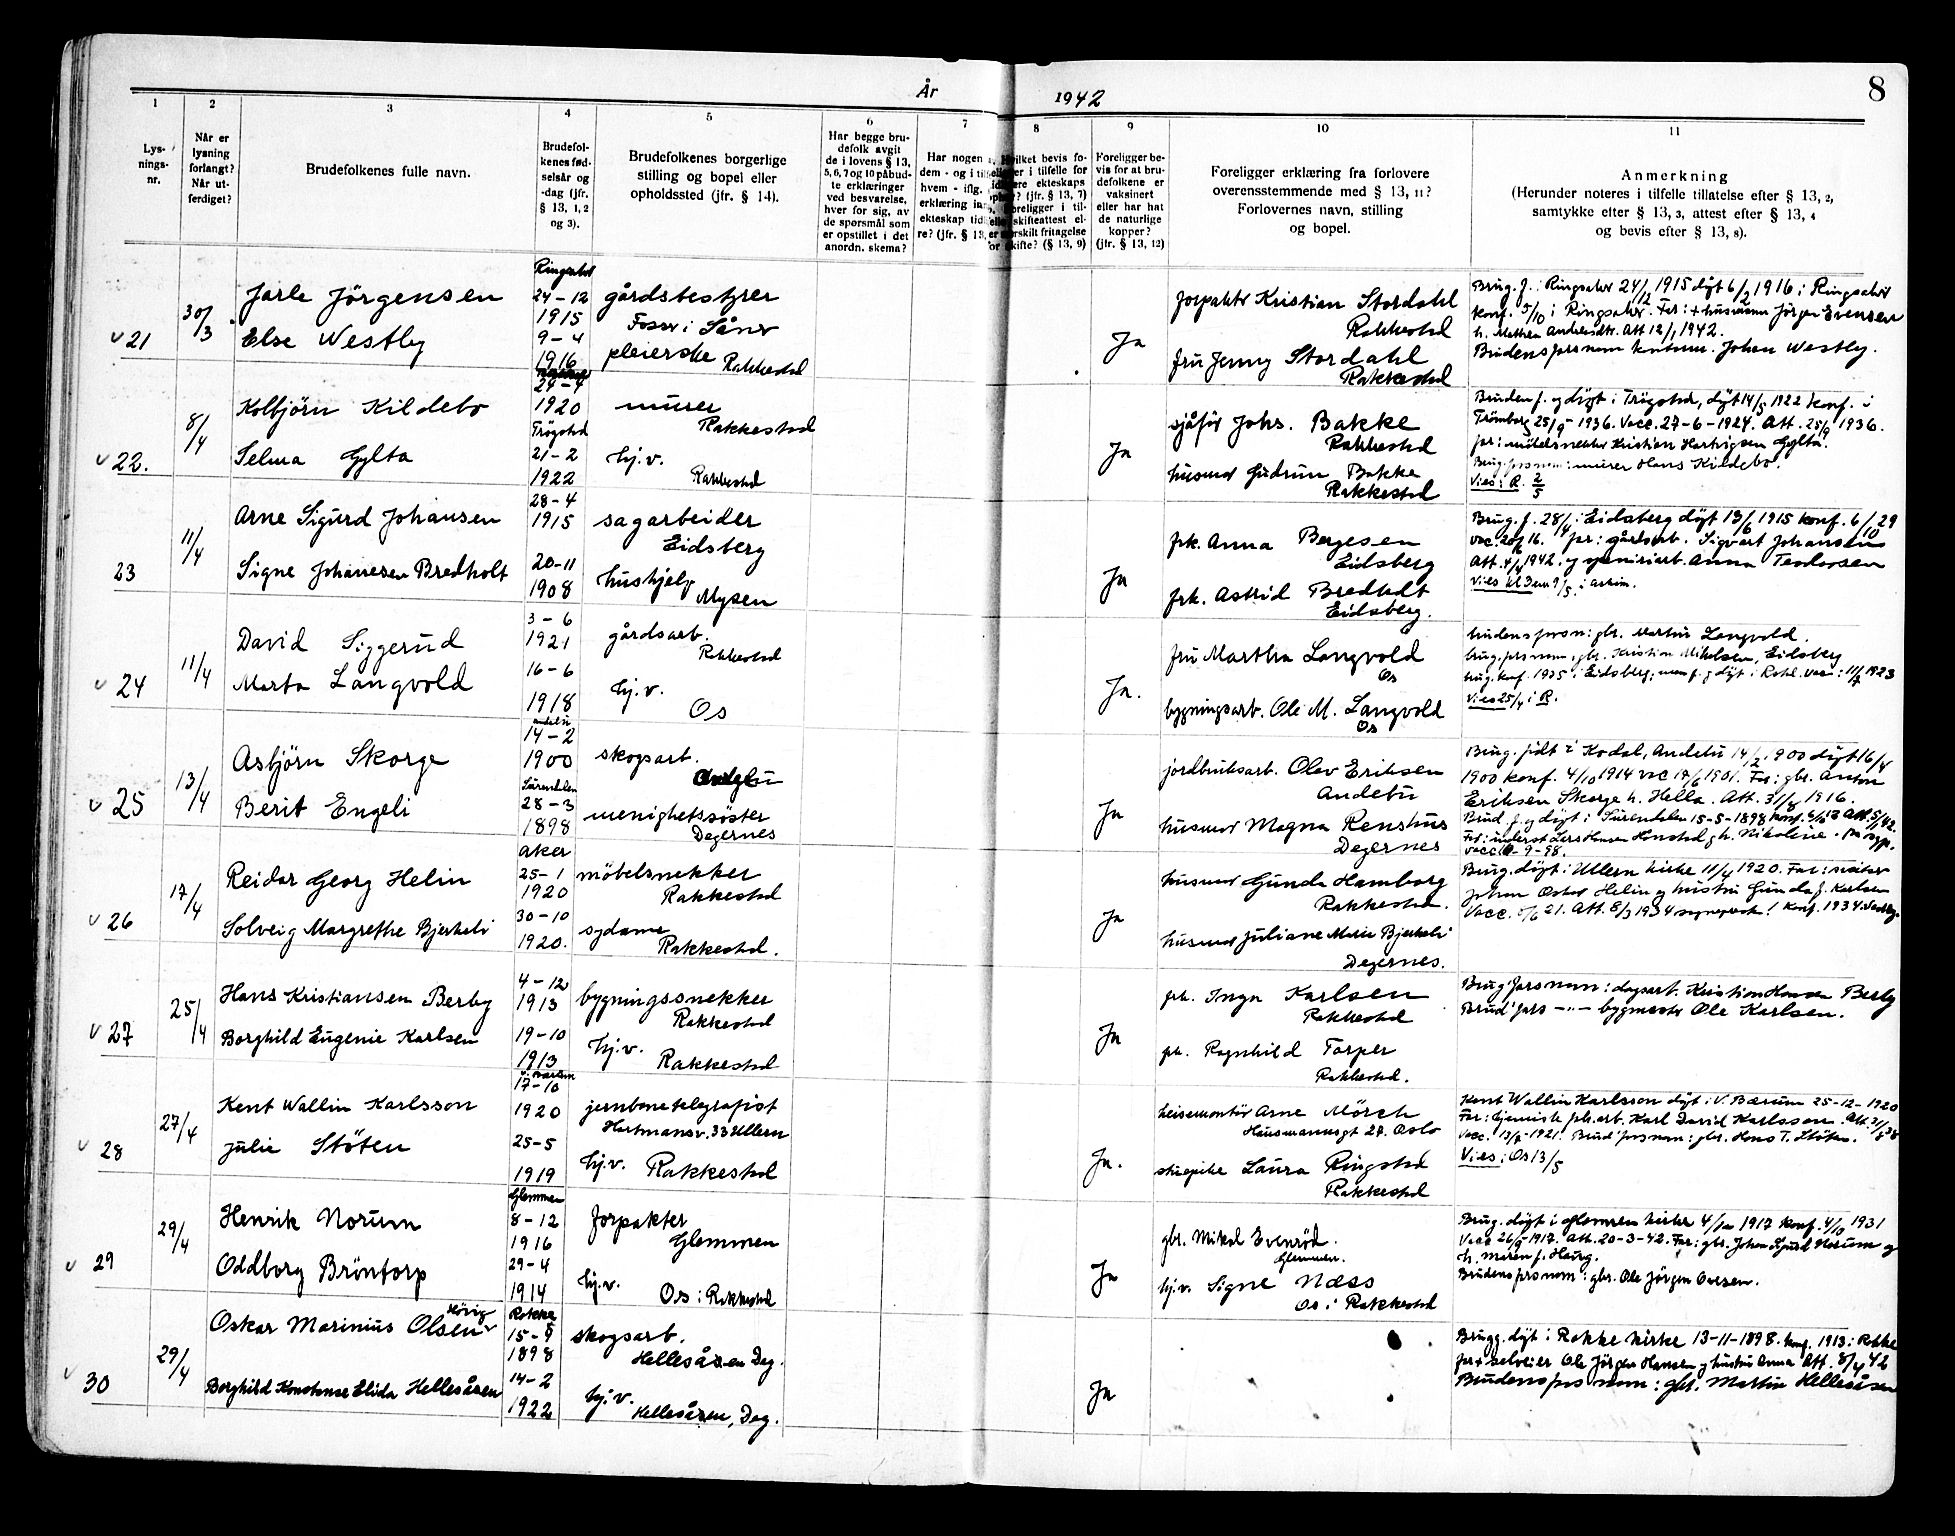 År 1942
8
1
2
3
4
5
6
7
8
9
10
11
Lys-
nings-
nr.
Når er
lysning
forlangt?
Når ut-
ferdiget?
Brudefolkenes fulle navn.
Brudefol-
kenes fød-
selsår og
-dag (jfr.
§ 13, 1, 2
og 3).
Brudefolkenes borgerlige
stilling og bopel eller
opholdssted (jfr. § 14).
Har begge bru-
defolk avgit
de i lovens § 13,
5, 6, 7 og 10 påbud-
te erklæringer
ved besvarelse,
hver for sig, av
de spørsmål som
er opstillet i det
anordn. skema?
Har nogen
dem - og i
hvem - iflg.
erklæring
ekteskap
re? (jfr. § 13,
Foreligger be-
vis for at bru-
defolkene er
vaksinert
eller har hat
de naturlige
kopper?
(jfr. § 13, 12)
Foreligger erklæring fra forlovere
overensstemmende med § 13, 11?
Forlovernes navn, stilling
og bopel.
Anmerkning
(Herunder noteres i tilfelle tillatelse efter § 13, 2,
samtykke efter § 13, 3, attest efter § 13, 4
og bevis efter § 13, 8).
v 21
30/3
Jarle Jörgensen
Else Westby
Ringsaker
24-12
1915
9-4
1916
gårdsbestyrer
pleierske Rakkestad
Ja
forpakter Kristian Stordahl
Rakkestad
fru Jenny Stordahl
Rakkestad
Brug. f. i Ringsaker 24/12 1915 döpt 6/2 1916 i Ringsaker
Konf. 5/10 i Ringsaker. Far: + husmann Jörgen Evensen
Att 12/1 1942.
Johan Westby.
v 22.
8/4
Kolbjörn Kildebo
Selma Gylta
24-4
1920
Trögstad
21-2
1922
murer
Rakkestad
hj.v.
Rakkestad
Ja
sjåför Johs. Bakke
Rakkestad
husmor Gudrun Bakke
Rakkestad
Bruden f. og döpt i Trögstad, döpt 14/5 1922 konf. i
Trömborg 25/9 1936. Vacc. 27-6-1924. Att. 25/9 1936.
far: möbelsnekker Kristian Hartvigsen Gylta.
murer Hans Kildebo.
Vies i R. 2/5
23
11/4
Arne Sigurd Johansen
Signe Johannesen Bredholt
28-4
1915
20-11
1908
sagarbeider
Eidsberg
hushjelp
Mysen
Ja
frk. Anna Børgesen
Eidsberg
frk. Astrid Bredholt
Eidsberg.
Brug. f. 28/4 i Eidsberg döpt 13/6 1915 konf. 6/10 29
far: gårdsarb. Sigvart Johansen
Anna Teodorsen
v 24
11/4
David Siggerud
Marta Langvold
3-6
1921
16-6
1918
gårdsarb.
Rakkestad
hj.v.
Os
Ja.
fru Martha Langvold
Os
bygningsarb. Ole M. Langvold
Os
gbr. Martin Langvold.
gbr. Kristian Mikelsen, Eidsberg
brug. konf. 1935 i Eidsberg, men f. og döpt i Rakk. vacc: 11/7 1923
Vies 25/4 i R.
v 25
13/4
Asbjörn Skorge
Berit Engeli
Andebu
14-2
1900
Surendalen
28-3
1898
skogsarb.
Andebu
menighetssöster
Degernes
Ja
jordbruksarb. Olav Eriksen
Andebu
husmor Magna Renshus
Degernes
Brug. födt i Kodal, Andebu 14/2 1900 döpt 16/4
1900 konf. 4/10 1914 vac 17/6 1901. Far: gbr. Anton
Eriksen Skorge h. Hella. Att. 31/8 1916.
Brud f. og döpt i Surendalen 15-5-1898
v 26
17/4
Reidar Georg Helin
Solveig Margrethe Bjerkeli
Aker
25-1
1920
30-10
1920.
möbelsnekker
Rakkestad
sydame
Rakkestad.
Ja
husmor Gunda Hamborg
Rakkestad.
husmor Juliane Marie Bjerkeli
Degernes.
Brug. döpt i Ullern kirke 11/4 1920.
Johan Oskar Helin og hustru Gunda f. Karlsen
v 27
25/4
Hans Kristiansen Berby
Borghild Eugenie Karlsen
4-12
1913
19-10
1913
bygningssnekker
Rakkestad
hj.v.
Rakkestad
Ja
frk. Inga Karlsen
Rakkestad
frk. Ragnhild Torper
Rakkestad.
Brug' fars navn: dagsarb. Kristian Hansen Berby
Brud' fars -"- bygmester Ole Karlsen.
v 28
27/4
Kent Wallin Karlsson
Julie Stöten
V. Bærum
17-10
1920
25-5
1919
jernbanetelegrafist
Hartmansv. 33 Ullern
hj.v. Rakkestad
Ja.
heisemontör Arne Mörch
Hausmannsgt 27. Oslo
Laura Ringstad
Rakkestad
Kent Wallin Karlsson döpt i V. Bærum 25-12-1920
Karl David Karlsson.
Brud' fars navn: gbr. Hans T. Stöten.
Vies i Os 13/5
v 29
29/4
Henrik Norum
Oddborg Bröntorp
Glemmen
8-12
1916
29-4
1914
Forpakter
Glemmen
hj.v.
Os i Rakkestad
Ja
gbr. Mikal Evenröd.
Glemmen.
hj.v. Signe Næss
Os i Rakkestad
Brug. döpt i Glemmen kirke 1917 konf. 4/10 1931
Vacc 26/9-1917. Att. 20-3-42. Far: gbr. Johan Sigurd Norum og
h. Maren f. Haug.
Brudens fars navn: gbr. Ole Jörgen Ovesen.
v 30
29/4
Oskar Marinius Olsen
Borghild Konstanse Elida Hellesåsen
Rokke
15-9
1898
14-2
1922
skogsarb.
Hellesåsen Deg.
hj.v.
Hellesåsen, Deg.
Ja
Brugg. döpt i Rokke kirke 13-11-1898. konf. 1913 i Rokke
far + selveier Ole Jörgen Hansen og hustru Anna Att. 8/4 42
Brudens fars navn: gbr. Martin Hellesåsen